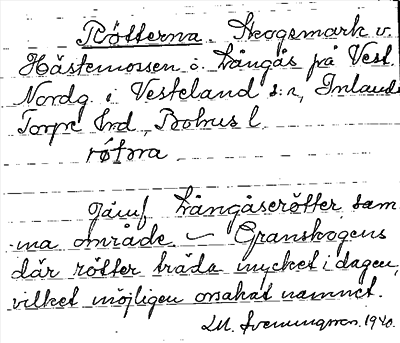 Rötterna. Skogsmark v.
Hästemossen o. Långås på Vest.
Nordg. i Vesteland s:n, Inlands
Torpe hrd, Bohus l.
røtɲa
Jämf. Långåserötter, sam-
ma område. — Granskogens
där rötter träda mycket i dagen,
vilket möjligen orsakat namnet.
1940.